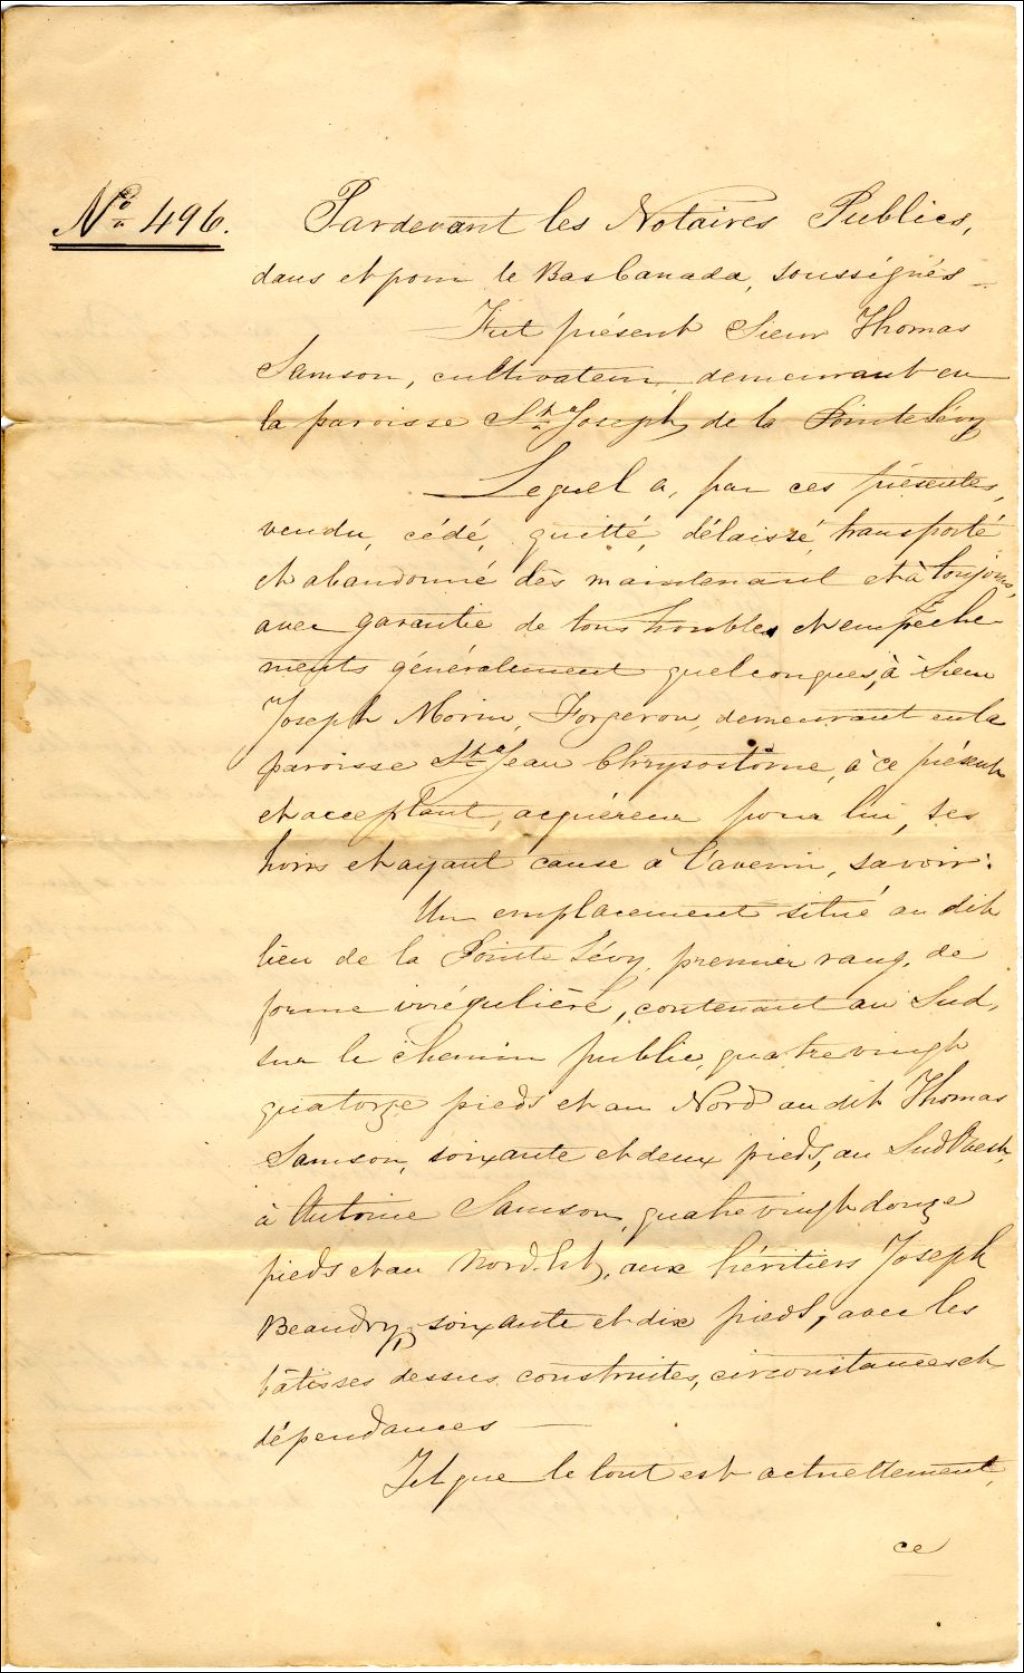 No 496. Pardevant les Notaires Publics,
dans et pour le Bas Canada, soussignés
Fut présent Sieur Thomas
Samson, cultivateur, demeurant en
la paroisse St Joseph, de la Pointe Lévy
Lequel a, par ces présentes,
vendu, cédé, quitté, délaissé, transporté
et abandonné dès maintenant et à toujours,
avec garantie de tous troubles et empêche
ments généralement quelconques, à Sieur
Joseph Morin, Forgeron, demeurant en la
paroisse St Jean Chrysostôme, à ce présent
et acceptant, acquéreur pour lui, ses
hoirs et ayant cause à l'avenir, savoir:
Un emplacement situé au dit
lieu de la Pointe Lévy, premier rang, de
forme irrégulière, contenant au Sud,
sur le chemin public, quatre vingt
quatorze pieds et au Nord au dit Thomas
Samson, soixante et deux pieds, au Sud Ouest,
à Antoine Samson, quatre vingt douze
pieds et au Nord-Est, aux héritiers Joseph
Beaudry, soixante et dix pieds, avec les
bâtisses dessus construites, circonstances et
dépendances —
Tel que le tout est actuellement,
ce